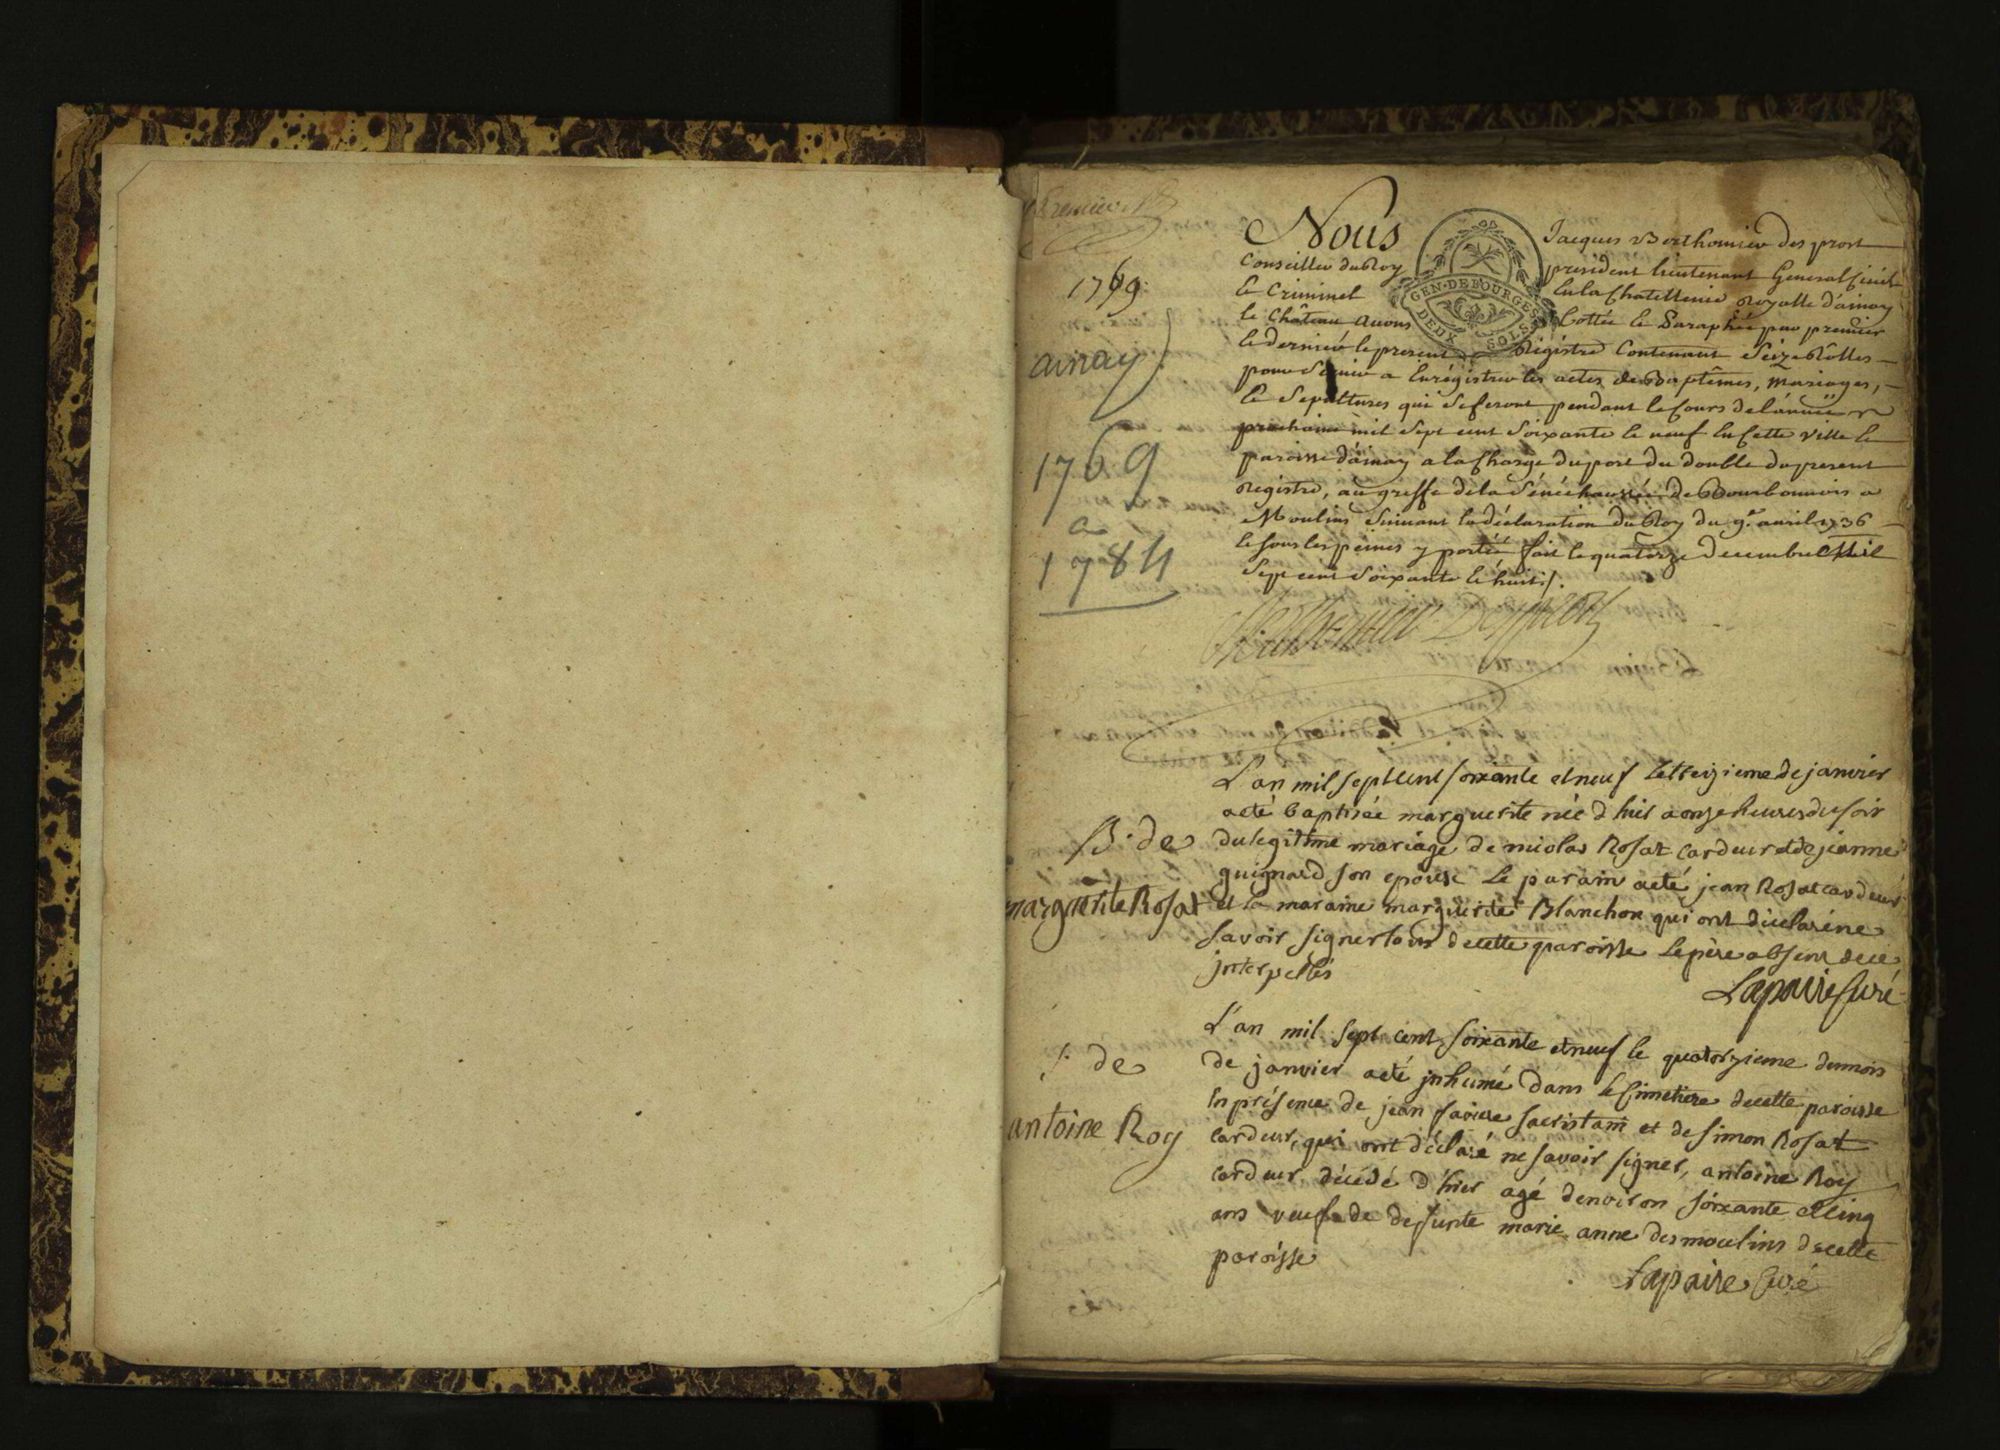 premier
1769
ainay
1769
a
1784
Nous Jacques Berthomier des prost
Conseiller du Roy president lieutenant General Civil
& Criminel En la Chatellenie Royalle d'ainay
le Château avons Cottée & Paraphée par premier
& dernier le present Régistre Contenant Seize Rolles
pour Servir a Enrégistrer les actes de Baptêmes, mariages,
& Sepultures qui se feront pendant le Cours de l'année
prochaine mil sept cent soixante & neuf En Cette ville &
paroisse d'ainay a la Charge du port du double du present
Régistre, au greffe de la Sénéchaussée de Bourbonnois a
Moulins suivant la déclaration du Roy du 9e avril 1736
& sous les peines y portéé fait le quatorze decembre Mil
Sept cent soixante & huit /.
Berthomier Desprost
GEN. DE BOURGES
DEUX SOLS
B. de
marguerite Rosat
L'an mil sept cent soixante et neuf le treizieme de janvier
a eté baptisée marguerite née d'hier a onze heures du soir
du legitime mariage de nicolas Rosat cardeur et de jeanne
guignard son epouse le parain a eté jean Rosat cardeur
et la maraine marguerite Blanchon qui ont déclaré ne
savoir signer tous de cette paroisse le père absent de ce
interpellés
Lapaire Curé
S. de
antoine Roy
L'an mil sept cent soixante et neuf le quatorzieme du mois
de janvier a eté inhumé dans le Cimetiere de cette paroisse
En présence de jean saviere sacristain et de simon Rosat
cardeur, qui ont déclaré ne savoir signer, antoine Roy
cardeur décédé d'hier agé d'environ soixante et cinq
ans veuf de defunte marie anne desmoulins de cette
paroisse
Lapaire Curé